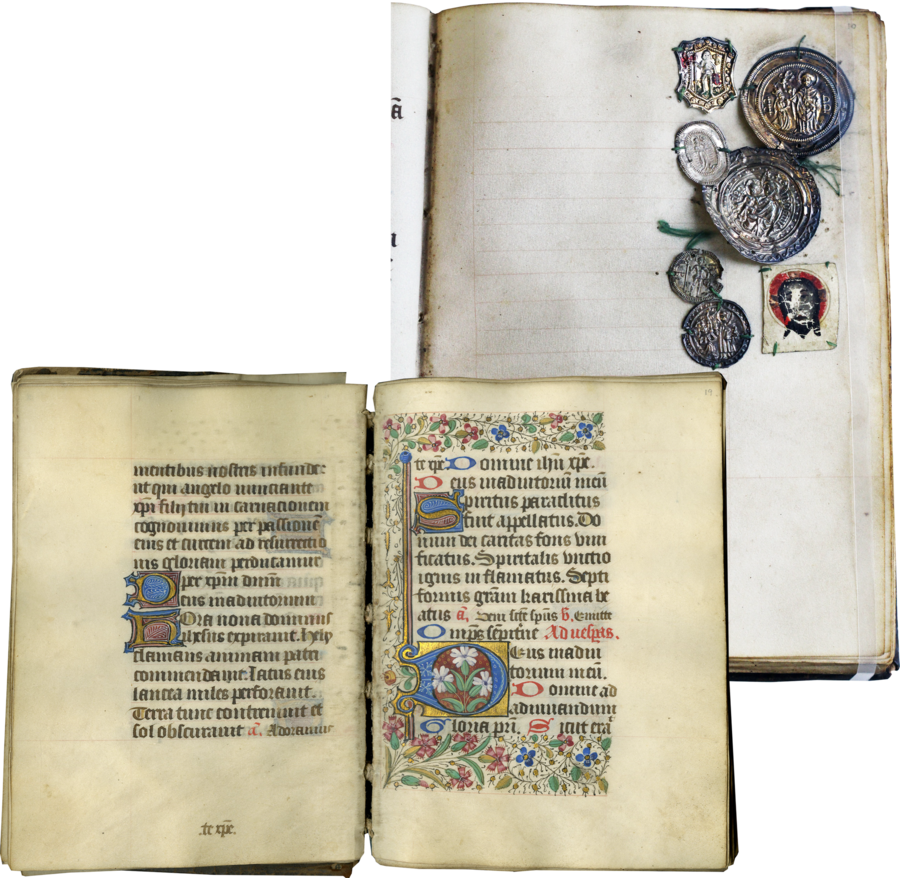 mentibus nostris infunde:
ut qui angelo nunciante
xp̅i filij tui in carnationem
cognouimus per passione̅
eius et crucem ad resurrectio
nis gloriam perducamur
per xp̅m dn̅m
Deus in adiutorium
Hora nona dominus
ihesus expirauit. Hely
clamans animam patri
commendauit. Latus eius
lancea miles perforauit.
Terra tunc contremuit et
sol obscurauit a̅. Adoramus
te xp̅e.
19
te xp̅e Domine ihu̅ xp̅e.
Deus in adiutorium meu̅
Spiritus paraclitus
fuit appellatus. Do
num dei caritas fons viui
ficatus. Spiritalis vnctio
ignis in flamatus. Septi
formis gr̅am karissima be
atus a̅. Veni sc̅te sp̅us v̅. Emitte
Omp̅s Ad vesp̅as.
Deus in adiu
torium meu̅.
Domine ad
adiuuandum
Gloria pr̅i. Sicut era̅